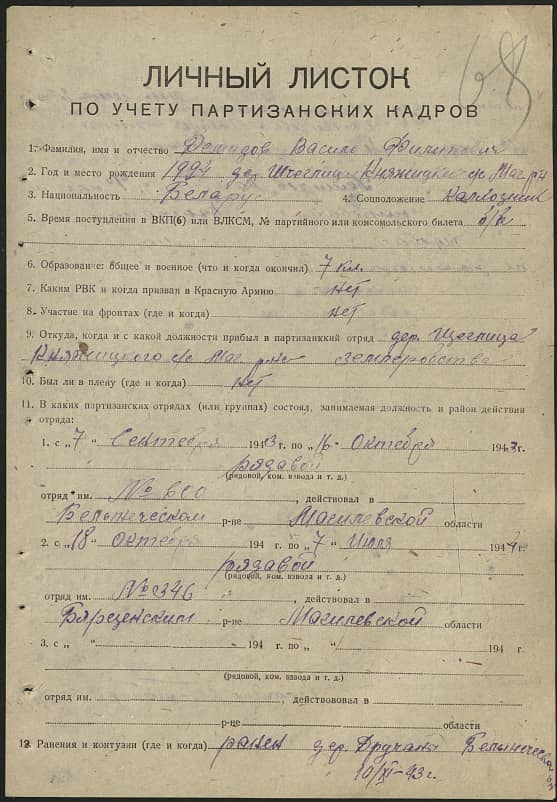 68
ЛИЧНЫЙ ЛИСТОК
ПО УЧЕТУ ПАРТИЗАНСКИХ КАДРОВ
1. Фамилия, имя и отчество Демидов Василь Филипович
2. Год и место рождения 1924 дер. Щеглица Княжицкого с/с Маг. р-н
3. Национальность Беларус 4. Соцположение Каллхозник
5. Время поступления в ВКП(б) или ВЛКСМ, № партийного или комсомольского билета б/п
6. Образование: общее и военное (что и когда окончил) 7 кл.
7. Каким РВК и когда призван в Красную Армию нет
8. Участие на фронтах (где и когда) нет
9. Откуда, когда и с какой должности прибыл в партизанкий отряд дер. Щеглица
Княжицкого с/с Маг. р-на земляробства
10. Был ли в плену (где и когда) нет
11. В каких партизанских отрядах (или группах) состоял, занимаемая должность и район действия
отряда:
1. с „7" Сентября 1943 г. по „16" Октября 1943 г.
рязавой
(рядовой, ком. взвода и т. д.)
отряд им. № 600, действовал в
Белыническом р-не Магилевской области
2. с „18" Октября 194 г. по „7" Июля 1944 г.
рязавой
(рядовой, ком. взвода и т. д.)
отряд им. № 346, действовал в
Бярезенским р-не Магилевской области
3. с „ " 194 г. по „ " 194 г.
(рядовой, ком. взвода и т. д.)
отряд им. , действововал в
р-не области
12. Ранения и контузии (где и когда) ранен дер. Дручаны
10/XI-43 г.